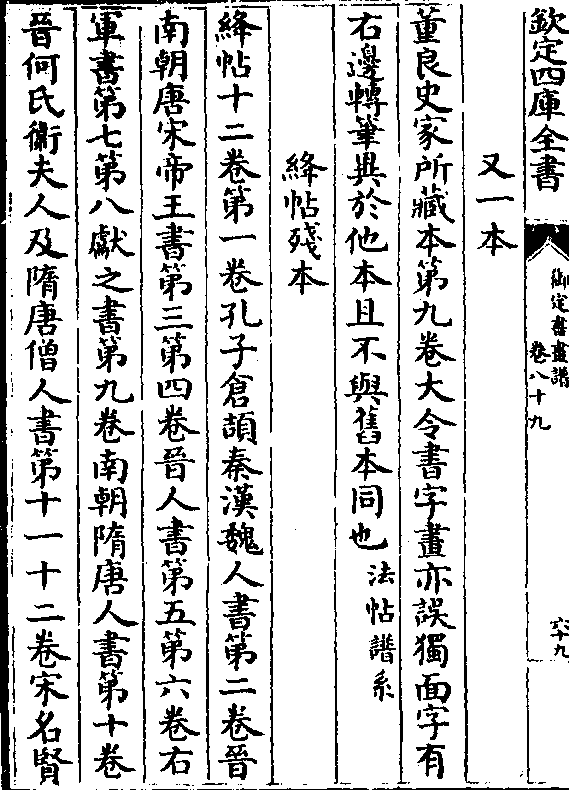 欽定四庫全書
御定書畫譜
卷八十九
六十九
又一本
董良史家所藏本第九卷大令書字畫亦誤獨面字有
右邊轉筆與於他本且不與舊本同也法帖譜系
絳帖殘本
絳帖十二卷第一卷孔子倉頡秦漢魏人書第二卷晉
南朝唐宋帝王書第三第四卷晉人書第五第六卷右
軍書第七第八獻之書第九卷南朝隋唐人書第十卷
晉何氏衛夫人及隋唐僧人書第十一十二卷宋名賢